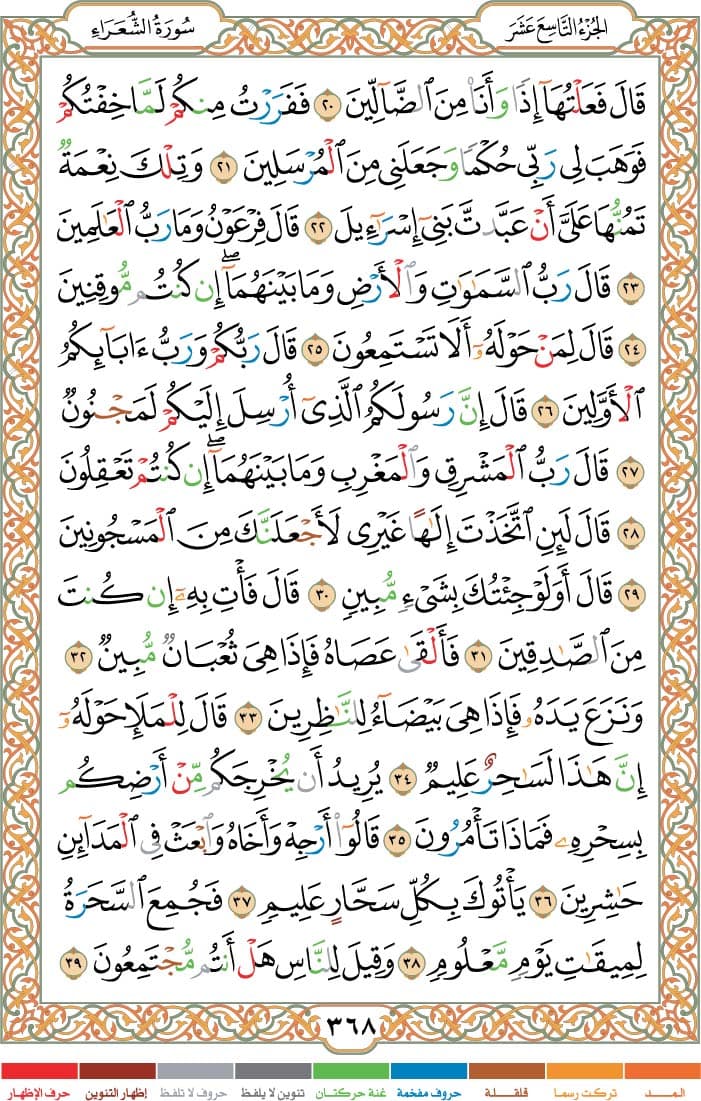 الجُزْءُ التَّاسِعَ عَشَرَ
سُورَةُ الشُّعَرَاءِ
قَالَ فَعَلْتُهَآ إِذًا وَأَنَا۠ مِنَ ٱلضَّآلِّينَ ٢٠ فَفَرَرْتُ مِنكُمْ لَمَّا خِفْتُكُمْ
فَوَهَبَ لِى رَبِّى حُكْمًا وَجَعَلَنِى مِنَ ٱلْمُرْسَلِينَ ٢١ وَتِلْكَ نِعْمَةٌ
تَمُنُّهَا عَلَىَّ أَنْ عَبَّدتَّ بَنِىٓ إِسْرَٰٓءِيلَ ٢٢ قَالَ فِرْعَوْنُ وَمَا رَبُّ ٱلْعَٰلَمِينَ
٢٣ قَالَ رَبُّ ٱلسَّمَٰوَٰتِ وَٱلْأَرْضِ وَمَا بَيْنَهُمَآ ۖ إِن كُنتُم مُّوقِنِينَ
٢٤ قَالَ لِمَنْ حَوْلَهُۥٓ أَلَا تَسْتَمِعُونَ ٢٥ قَالَ رَبُّكُمْ وَرَبُّ ءَابَآئِكُمُ
ٱلْأَوَّلِينَ ٢٦ قَالَ إِنَّ رَسُولَكُمُ ٱلَّذِىٓ أُرْسِلَ إِلَيْكُمْ لَمَجْنُونٌ
٢٧ قَالَ رَبُّ ٱلْمَشْرِقِ وَٱلْمَغْرِبِ وَمَا بَيْنَهُمَآ ۖ إِن كُنتُمْ تَعْقِلُونَ
٢٨ قَالَ لَئِنِ ٱتَّخَذْتَ إِلَٰهًا غَيْرِى لَأَجْعَلَنَّكَ مِنَ ٱلْمَسْجُونِينَ
٢٩ قَالَ أَوَلَوْ جِئْتُكَ بِشَىْءٍ مُّبِينٍ ٣٠ قَالَ فَأْتِ بِهِۦٓ إِن كُنتَ
مِنَ ٱلصَّٰدِقِينَ ٣١ فَأَلْقَىٰ عَصَاهُ فَإِذَا هِىَ ثُعْبَانٌ مُّبِينٌ ٣٢
وَنَزَعَ يَدَهُۥ فَإِذَا هِىَ بَيْضَآءُ لِلنَّٰظِرِينَ ٣٣ قَالَ لِلْمَلَإِ حَوْلَهُۥٓ
إِنَّ هَٰذَا لَسَٰحِرٌ عَلِيمٌ ٣٤ يُرِيدُ أَن يُخْرِجَكُم مِّنْ أَرْضِكُم
بِسِحْرِهِۦ فَمَاذَا تَأْمُرُونَ ٣٥ قَالُوٓا۟ أَرْجِهْ وَأَخَاهُ وَٱبْعَثْ فِى ٱلْمَدَآئِنِ
حَٰشِرِينَ ٣٦ يَأْتُوكَ بِكُلِّ سَحَّارٍ عَلِيمٍ ٣٧ فَجُمِعَ ٱلسَّحَرَةُ
لِمِيقَٰتِ يَوْمٍ مَّعْلُومٍ ٣٨ وَقِيلَ لِلنَّاسِ هَلْ أَنتُم مُّجْتَمِعُونَ ٣٩
٣٦٨
المـــد تركت رسما قلقـــلة حروف مفخمة غنة حركتـان تنوين لا يلفظ حروف لا تلفظ إظهار التنوين حرف الإظهار